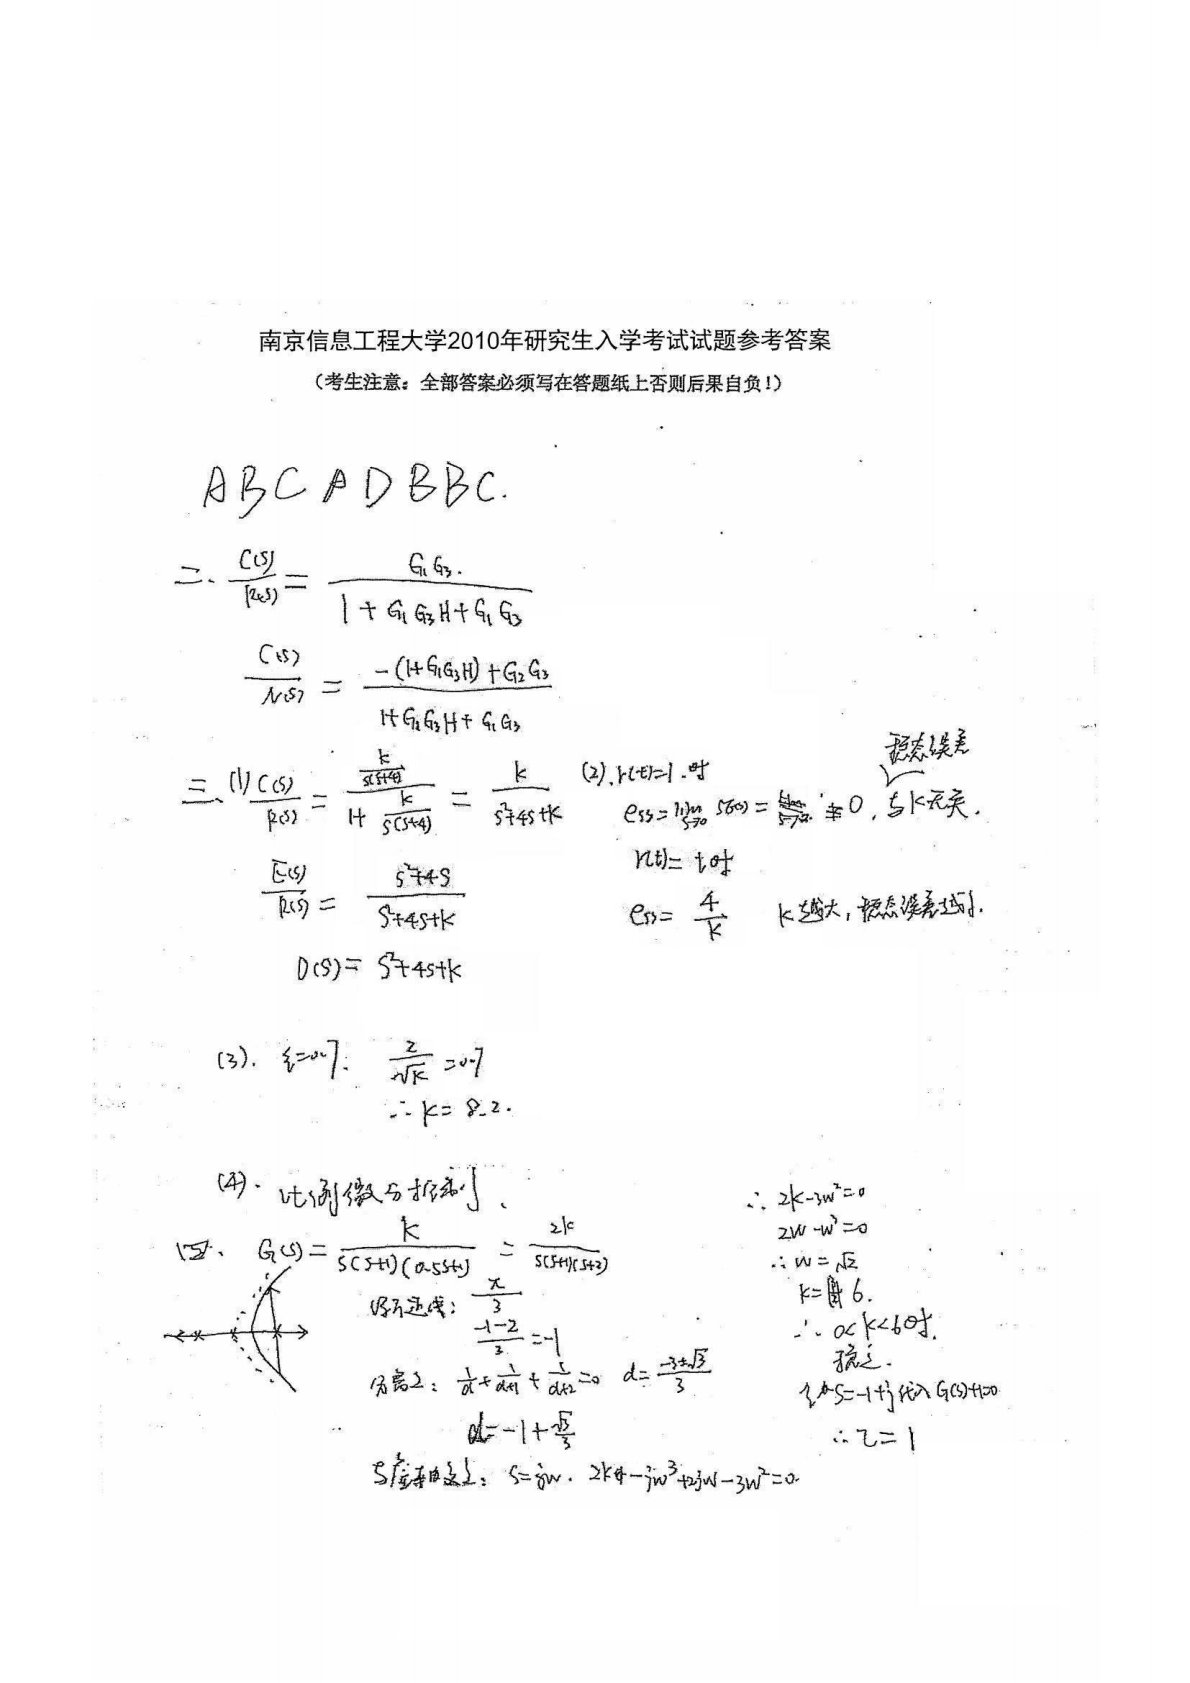 南京信息工程大学2010年研究生入学考试试题参考答案
（考生注意：全部答案必须写在答题纸上否则后果自负！）
A B C A D B B C.
二、C(s)/R(s) = G1G3 / (1+G1G3H+G1G3)
C(s)/N(s) = (-(1+G1G3H)+G2G3) / (1+G1G3H+G1G3)
三、(1) C(s)/R(s) = (k/(s(s+4))) / (1+ k/(s(s+4))) = k/(s²+4s+k)
E(s)/R(s) = (s²+4s)/(s²+4s+k)
D(s) = s²+4s+k
(2). r(t)=1.时
稳态误差
ess = lim s→0 = 0, 与k无关.
r(t)= t时
ess= 4/k k越大, 稳态误差越小.
(3). ξ=0.7. 2/√k =0.7
∴ k= 8.2.
(4). 比例微分控制、
四、G(s) = k/(s(s+1)(0.5s+1)) = 2k/(s(s+1)(s+2))
渐近线: π/3
(-1-2)/3 =-1
分离点: 1/d + 1/(d+1) + 1/(d+2) =0 d= (-3±√3)/3
d=-1+ √3/3
与虚轴的交点: s=jw. 2k-jw³+2jw-3w²=0
∴ 2k-3w²=0
2w-w³=0
∴ w=√2
k= 6.
∴ 0<k<6时.
稳定.
s=-1+j代入G(s)+1=0
∴ τ=1